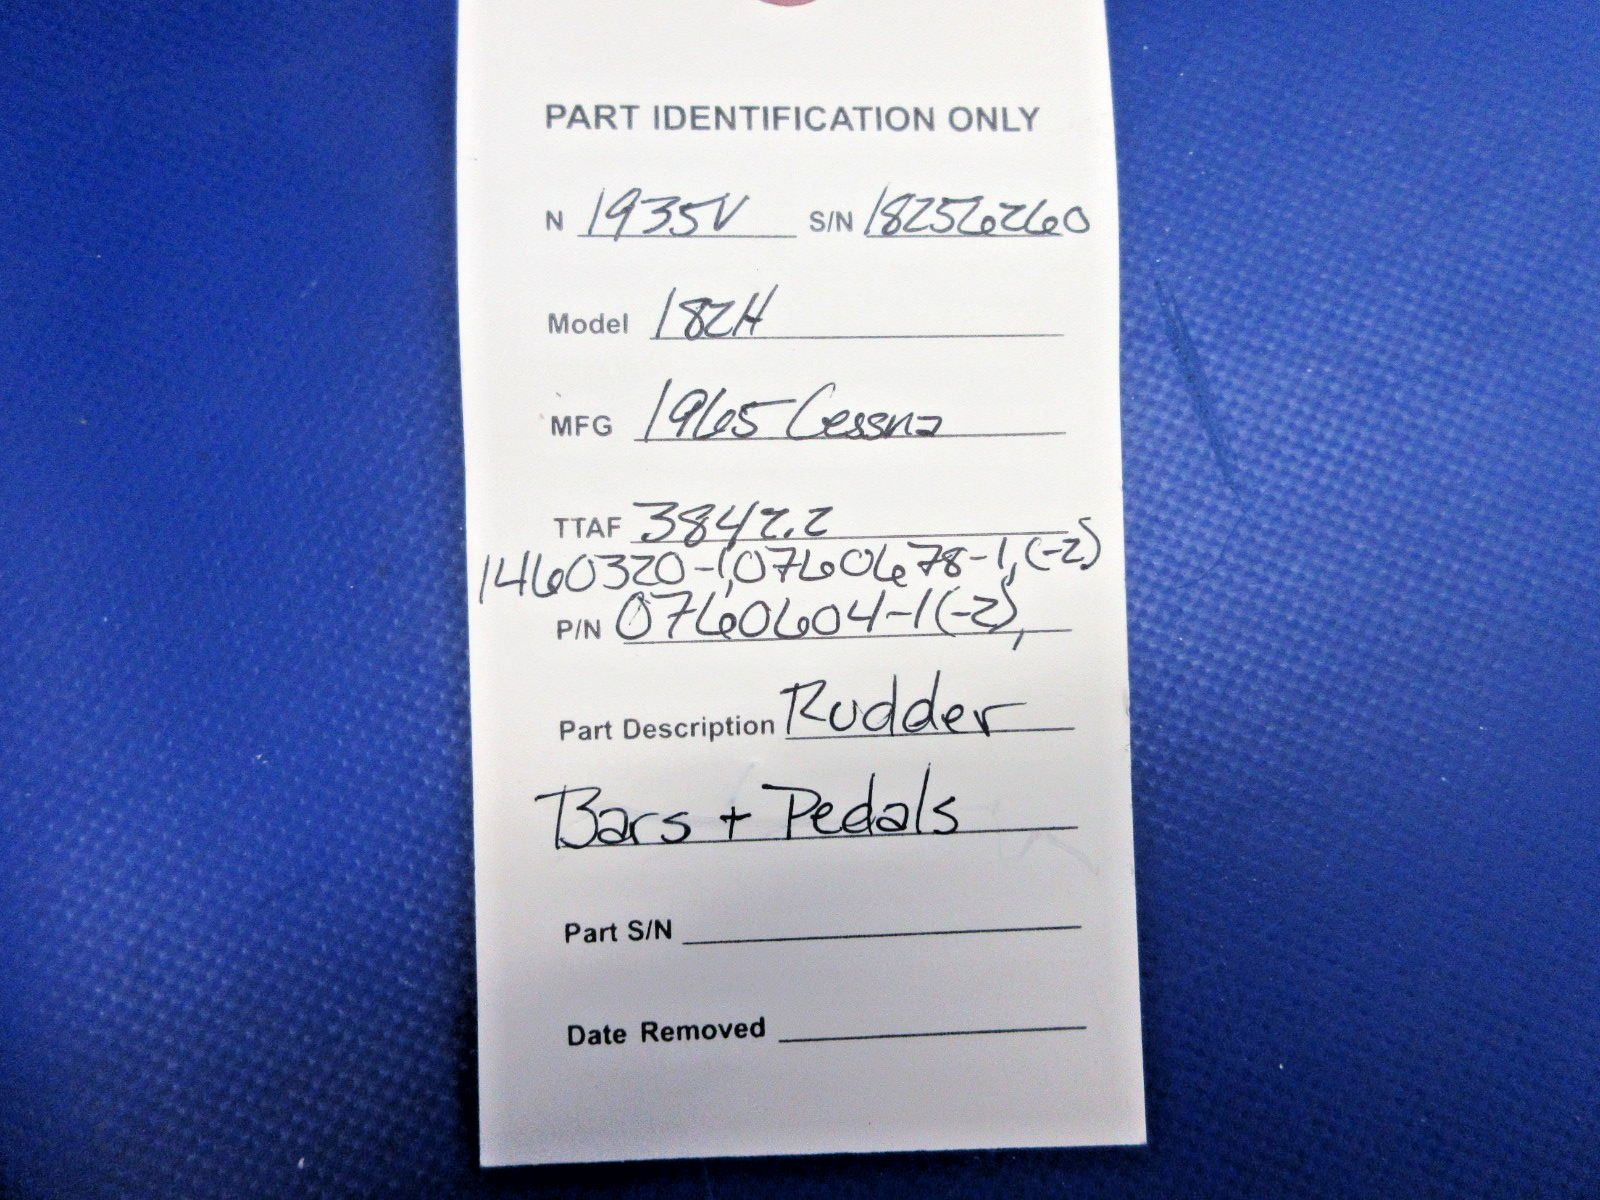 PART IDENTIFICATION ONLY
N 1935V S/N 18256260
Model 182H
MFG 1965 Cessna
TTAF 3842.2
1460320-1,0760678-1,(-2)
P/N 0760604-1(-2),
Part Description Rudder
Bars + Pedals
Part S/N
Date Removed